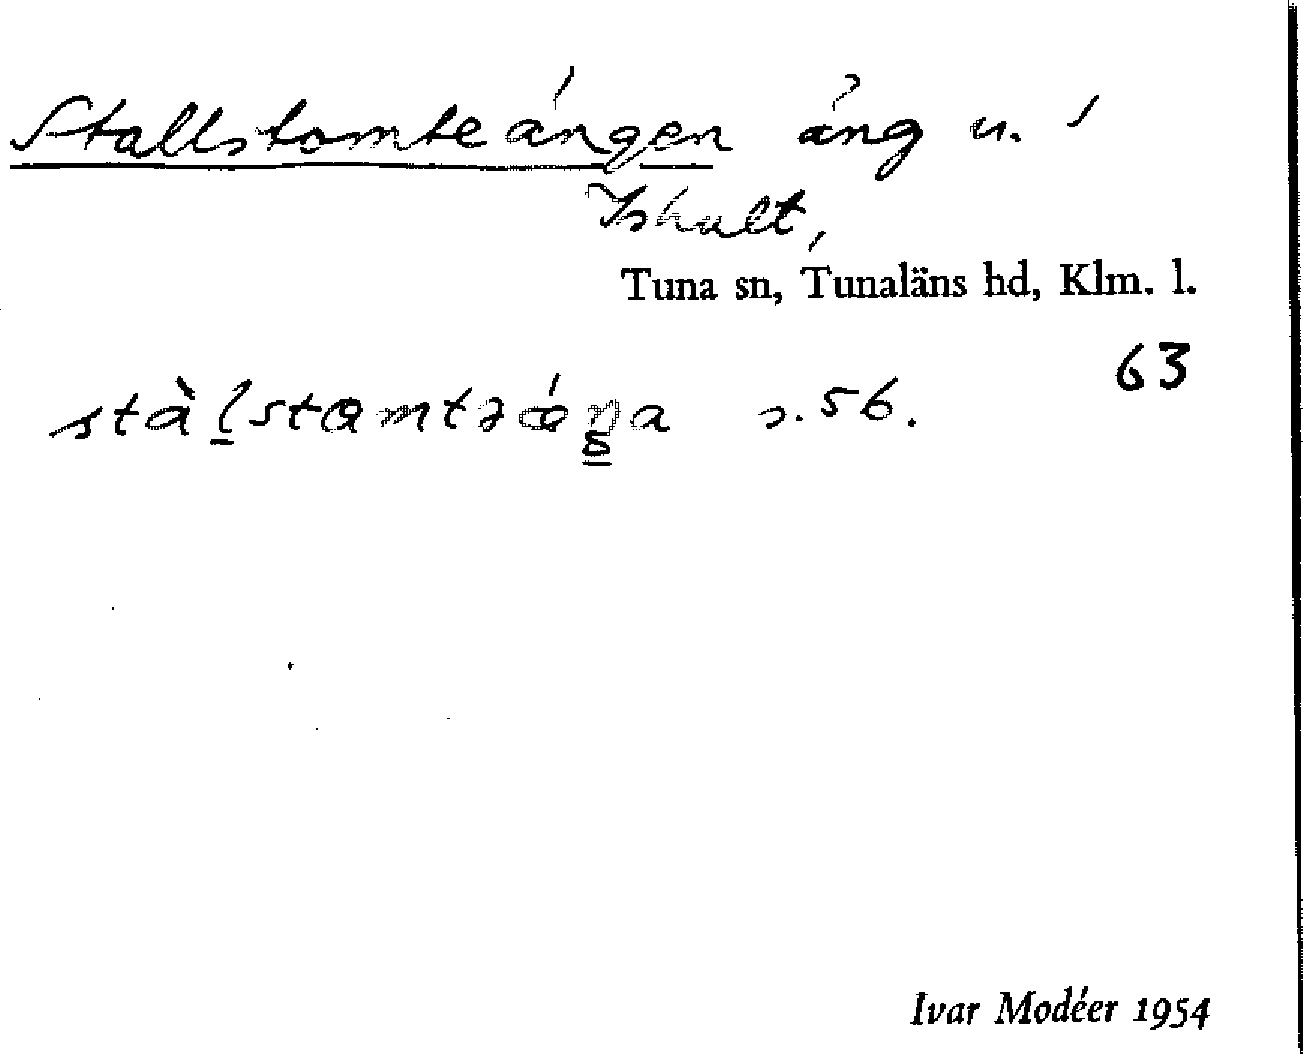 Stallstomteängen äng u.
Ishult,
Tuna sn, Tunaläns hd, Klm. l.
63
s. 56.
Ivar Modéer 1954